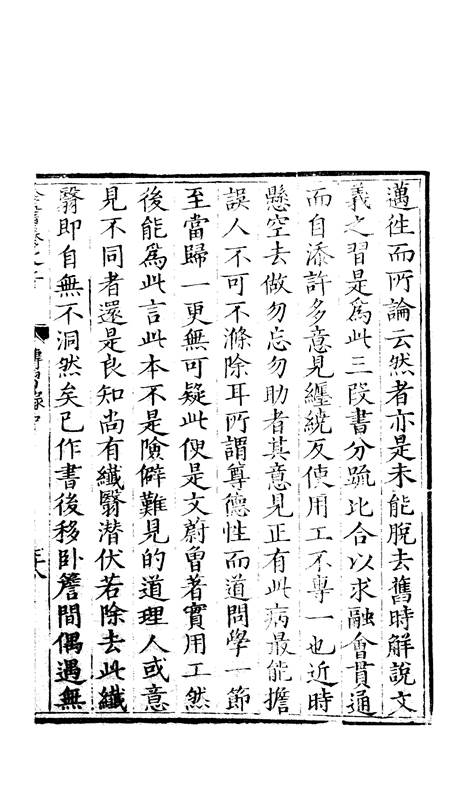 邁徃而所論云然者亦是未能脫去舊時解說文
義之習是爲此三段書分䟽比合以求融會貫通
而自添許多意見纏繞反使用工不專一也近時
懸空去做勿忘勿助者其意見正有此病最能擔
誤人不可不滌除耳所謂尊德性而道問學一節
至當歸一更無可疑此便是文蔚曾著實用工然
後能爲此言此本不是險僻難見的道理人或意
見不同者還是良知尚有纖翳潜伏若除去此纖
翳即自無不洞然矣已作書後移卧簷間偶遇無